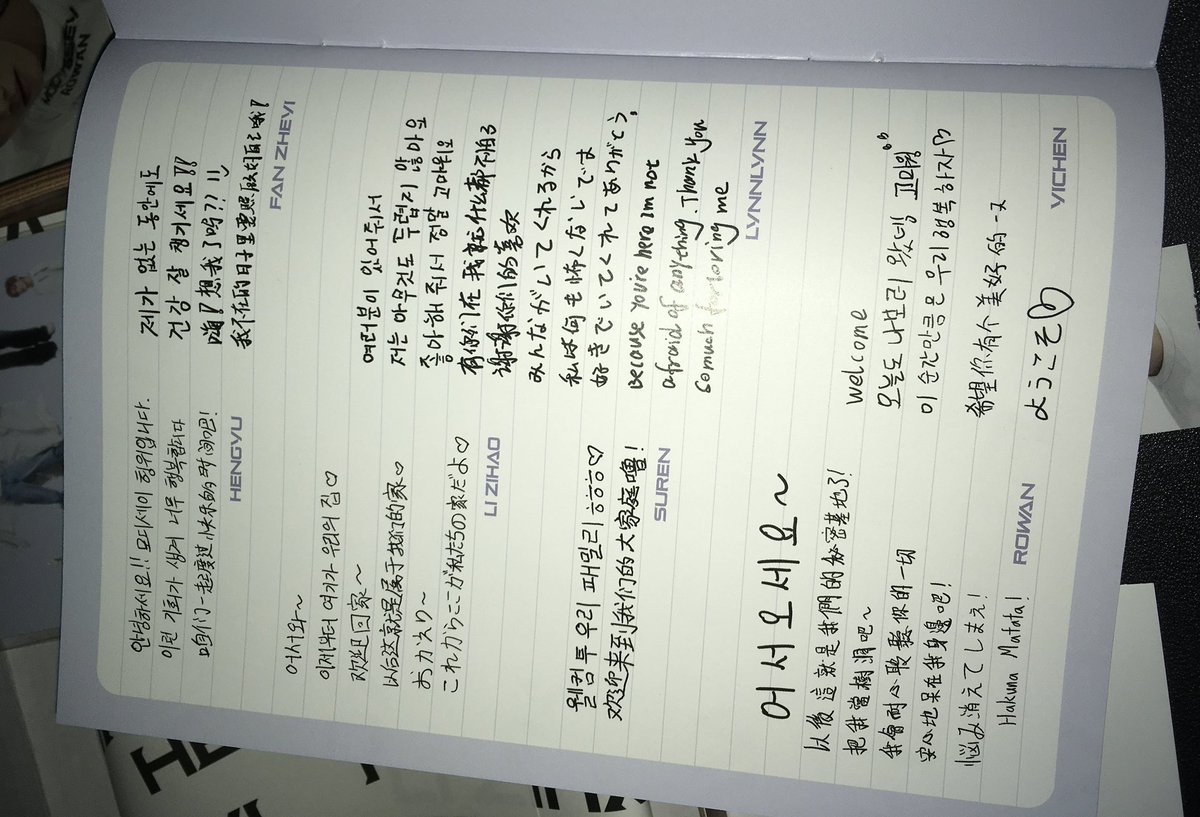 안녕하세요!! 모디세이 헝위입니다.
이런 기회가 생겨 너무 행복합니다
咱们一起度过快乐的时间吧!
HENGYU
어서와~
이제부터 여기가 우리의 집♡
欢迎回家~
以后这就是属于我们的家♡
おかえり~
これからここが私たちの家だよ♡
LI ZIHAO
웰컴 투 우리 패밀리 ㅎㅎㅎ♡
欢迎来到我们的大家庭噜!
SUREN
어서오세요~
以後這就是我們的秘密基地了!
把我當樹洞吧~
我會耐心聆聽你的一切
安心地呆在我身邊吧!
悩み消えてしまえ!
Hakuna Matata!
ROWAN
제가 없는 동안에도
건강 잘 챙기세요!!
嗨! 想我了吗??
我不在的日子里要照顾好自己哦!
FAN ZHEYI
여러분이 있어줘서
저는 아무것도 두렵지 않아요
좋아해 줘서 정말 고마워요
有你们在 我就什么都不怕了
谢谢你们的喜欢
みんながいてくれるから
私は何も怖くないです
好きでいてくれてありがとう。
because you're here Im not
afraid of anything. Thank you
so much for loving me
LYNNLYNN
welcome
오늘도 나 보러 왔넹 고마웡
이 순간만큼은 우리 행복하자
希望你有个美好的一天
ようこそ♡
YICHEN
ROWAN